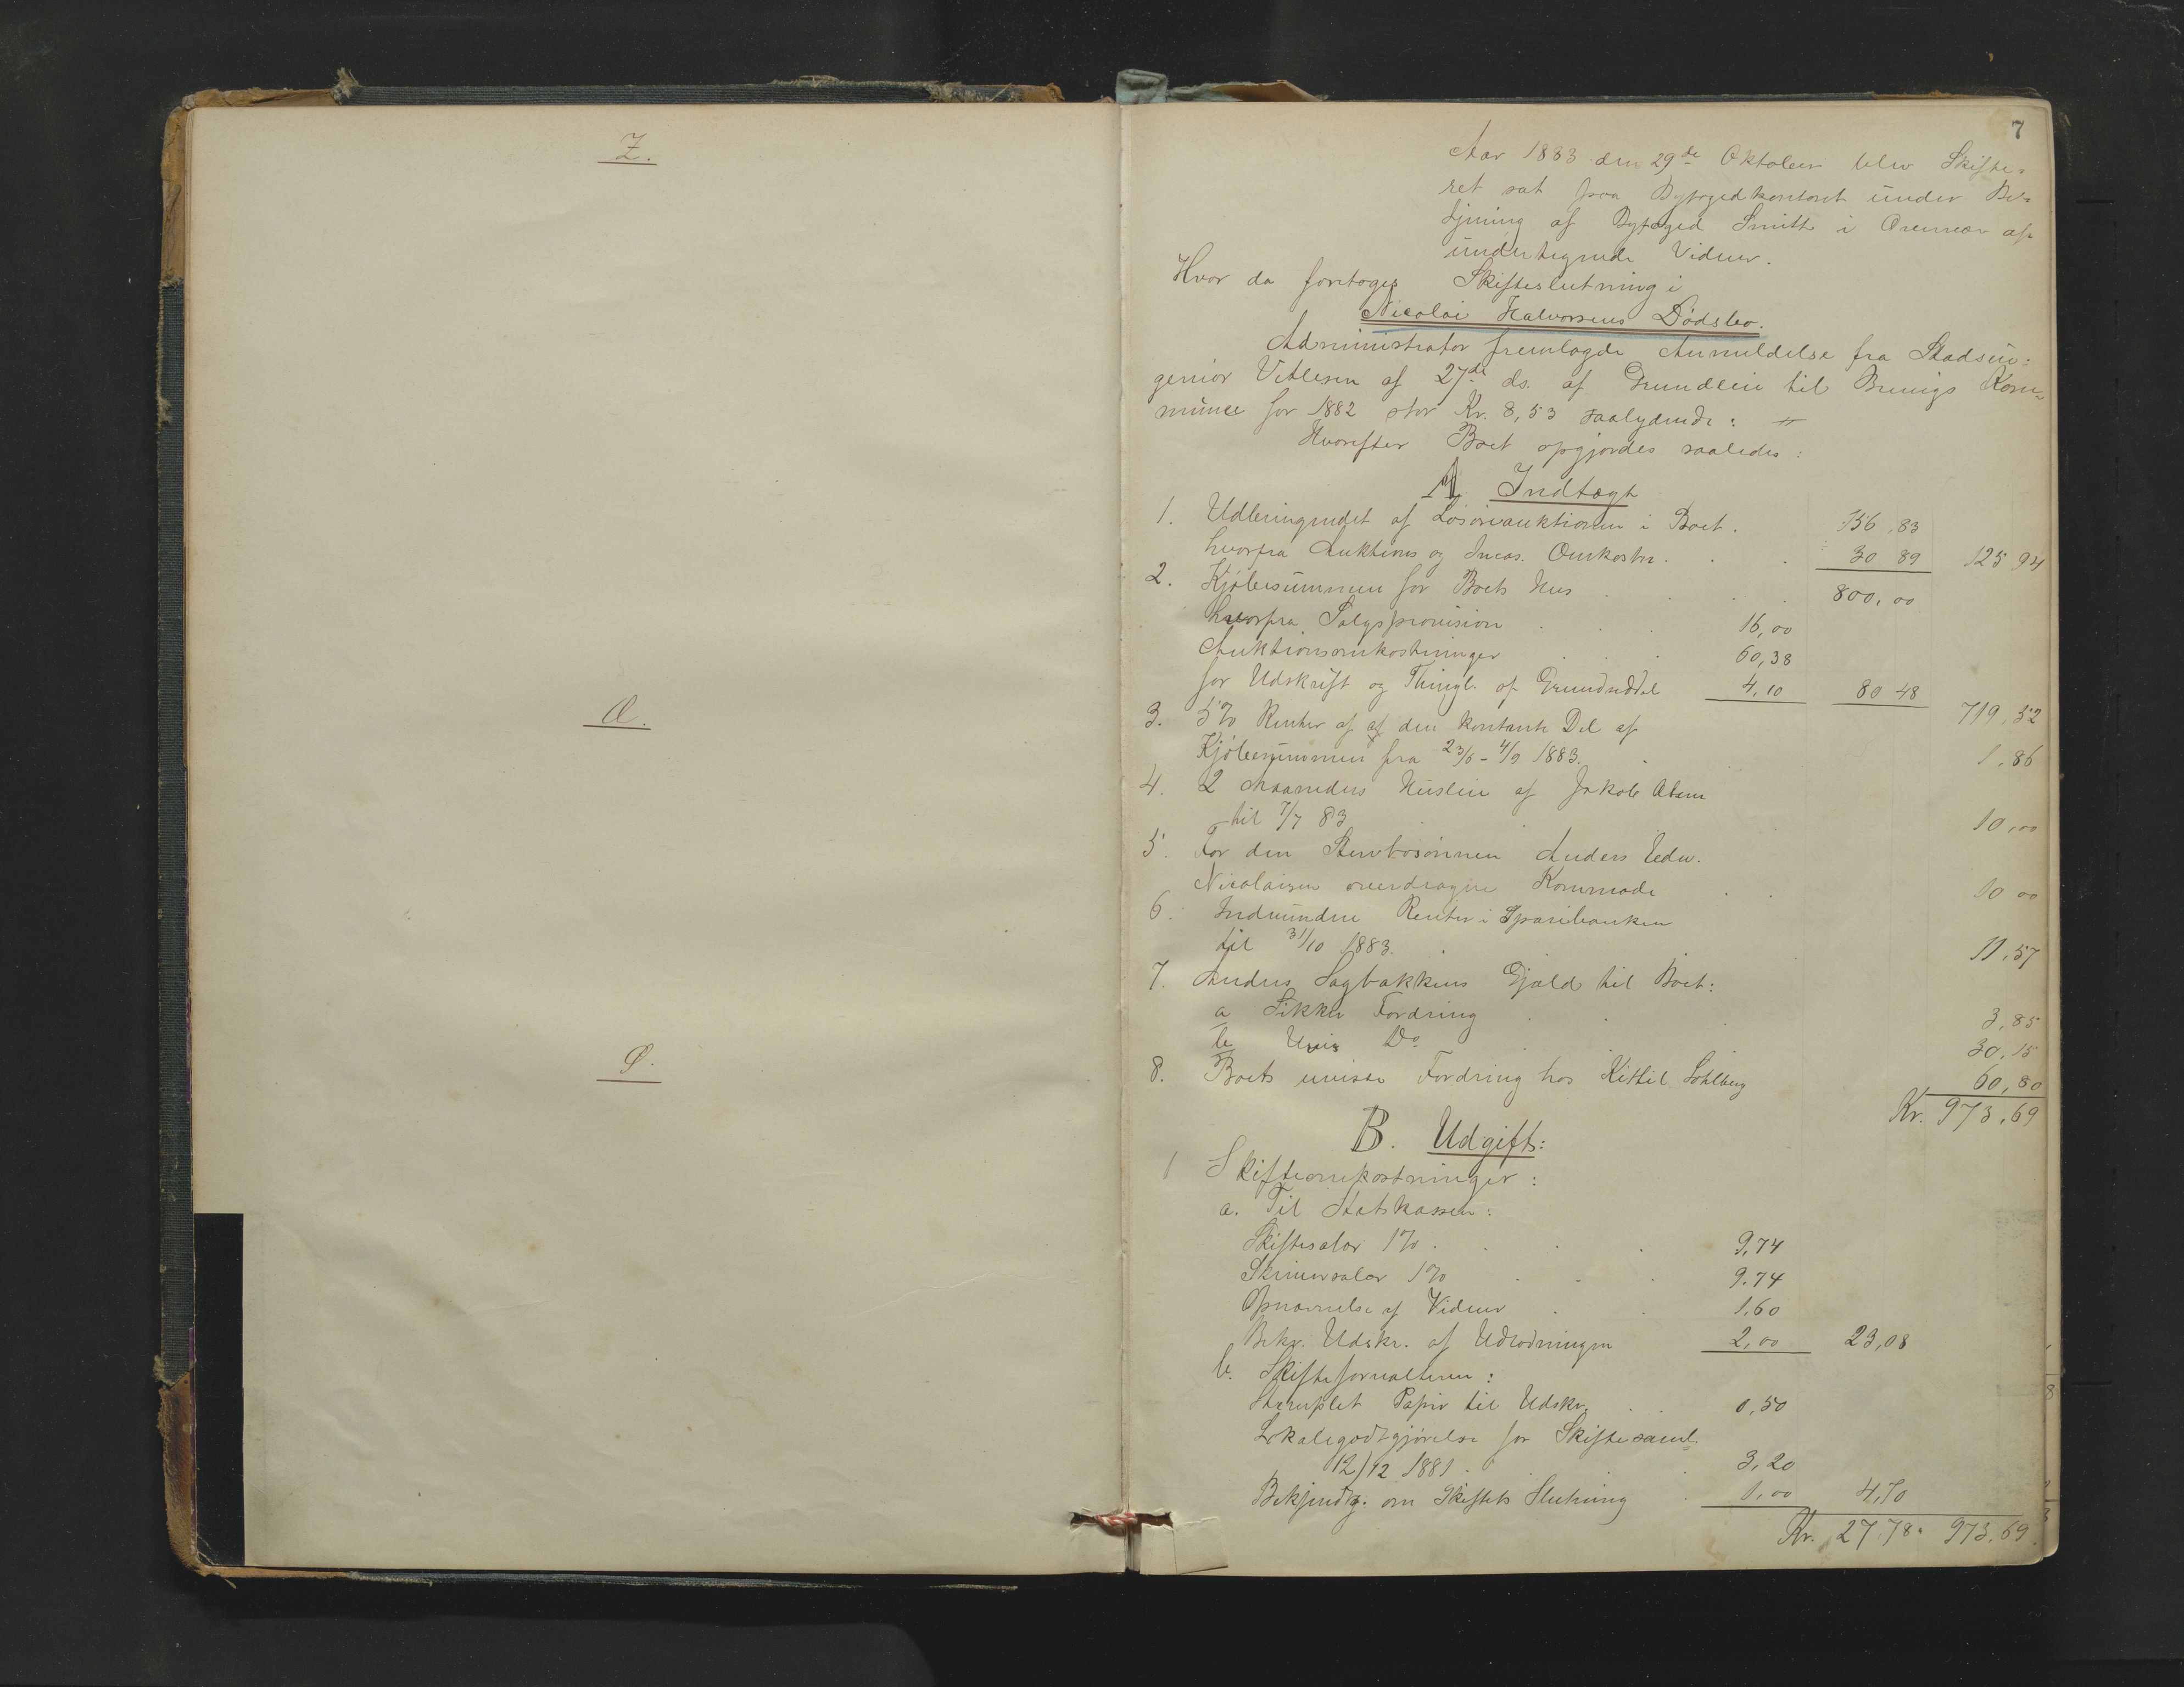 Z.
Æ.
Ø.
7
Aar 1883 den 29de Oktober blev Skifte=
ret sat paa Byfogedkontoret under Be=
tjening af Byfoged Smith i Overvær af
undertegnede Vidner.
Hvor da foretoges Skifteslutning i
Nicolai Halvorsens Dødsbo.
Administrator fremlagde Anmeldelse fra Stadsin=
geniør Vetlesen af 27de ds. af Grundleie til Kom=
mune for 1882 stor Kr. 8,53 saalydende:
Hvorefter Boet opgjordes saaledes:
A Indtægt
1. Udbringendet af Løsøreauktionen i Boet. 156,83
hvorfra Auktions og Incas. Omkostn. 30 89 125 94
2. Kjøbesummen for Boets Hus 800,00
hvorfra Salgsprovision 16,00
Auktionsomkostninger 60,38
for Udskrift og Thingl. af Grundseddel 4,10 80 48
719,52
3. 5% Renter af af den kontante Del af
Kjøbesummen fra 23/6 - 4/9 1883. 1,86
4. 2 Maaneders Husleie af Jakob
til 7/7 83 10,00
5. For den Stervbosønnen Anders Edv.
Nicolaisen overdragne Kommode 10 00
6. Indvundne Renter i Sparebanken
til 31/10 1883. 11,57
7. Anders Sagbakkens Gjæld til Boet:
a Sikker Fordring 3,85
b Uvis Do 30,15
8. Boets uvisse Fordring hos Kittil Sohlberg 60,80
Kr. 973,69
B. Udgift:
1 Skifteomkostninger:
a. Til Statskassen:
Skiftesalær 1% 9,74
Skriversalær 1% 9.74
Opnævnelse af Vidner 1,60
Bekr. Udskr. af Udlodningen 2,00 23,08
b. Skifteforvalteren:
Stemplet Papir til Udskr. 0,50
Lokalegodtgjørelse for Skiftesaml.
12/12 1881 3,20
Bekjendtg. om Skiftets Slutning 1,00 4,70
Kr. 27,78. 973,69.